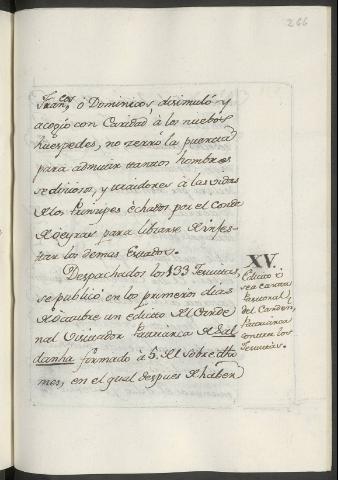 266
Fran.cos ó Dominicos, disimuló y
acogió con Caridad à los nuebos
huespedes, no zerró la puerta
para admitir tantos hombres
sediciosos, y traidores à las vidas
de los Principes èchados por el Conde
de Oeyras para librarse de infes-
tar los demas Estados.
Despachados los 133 Jesuitas,
se publicó en los primeros dias
de Octubre un edicto del Carde
nal Visitador Patriarca de Sal
danha formado à 5. del sobre dho
mes, en el qual despues de haber
XV.
Edicto ò
sea carta
Pastoral
del Carden.l
Patriarca
contra los
Jesuitas.